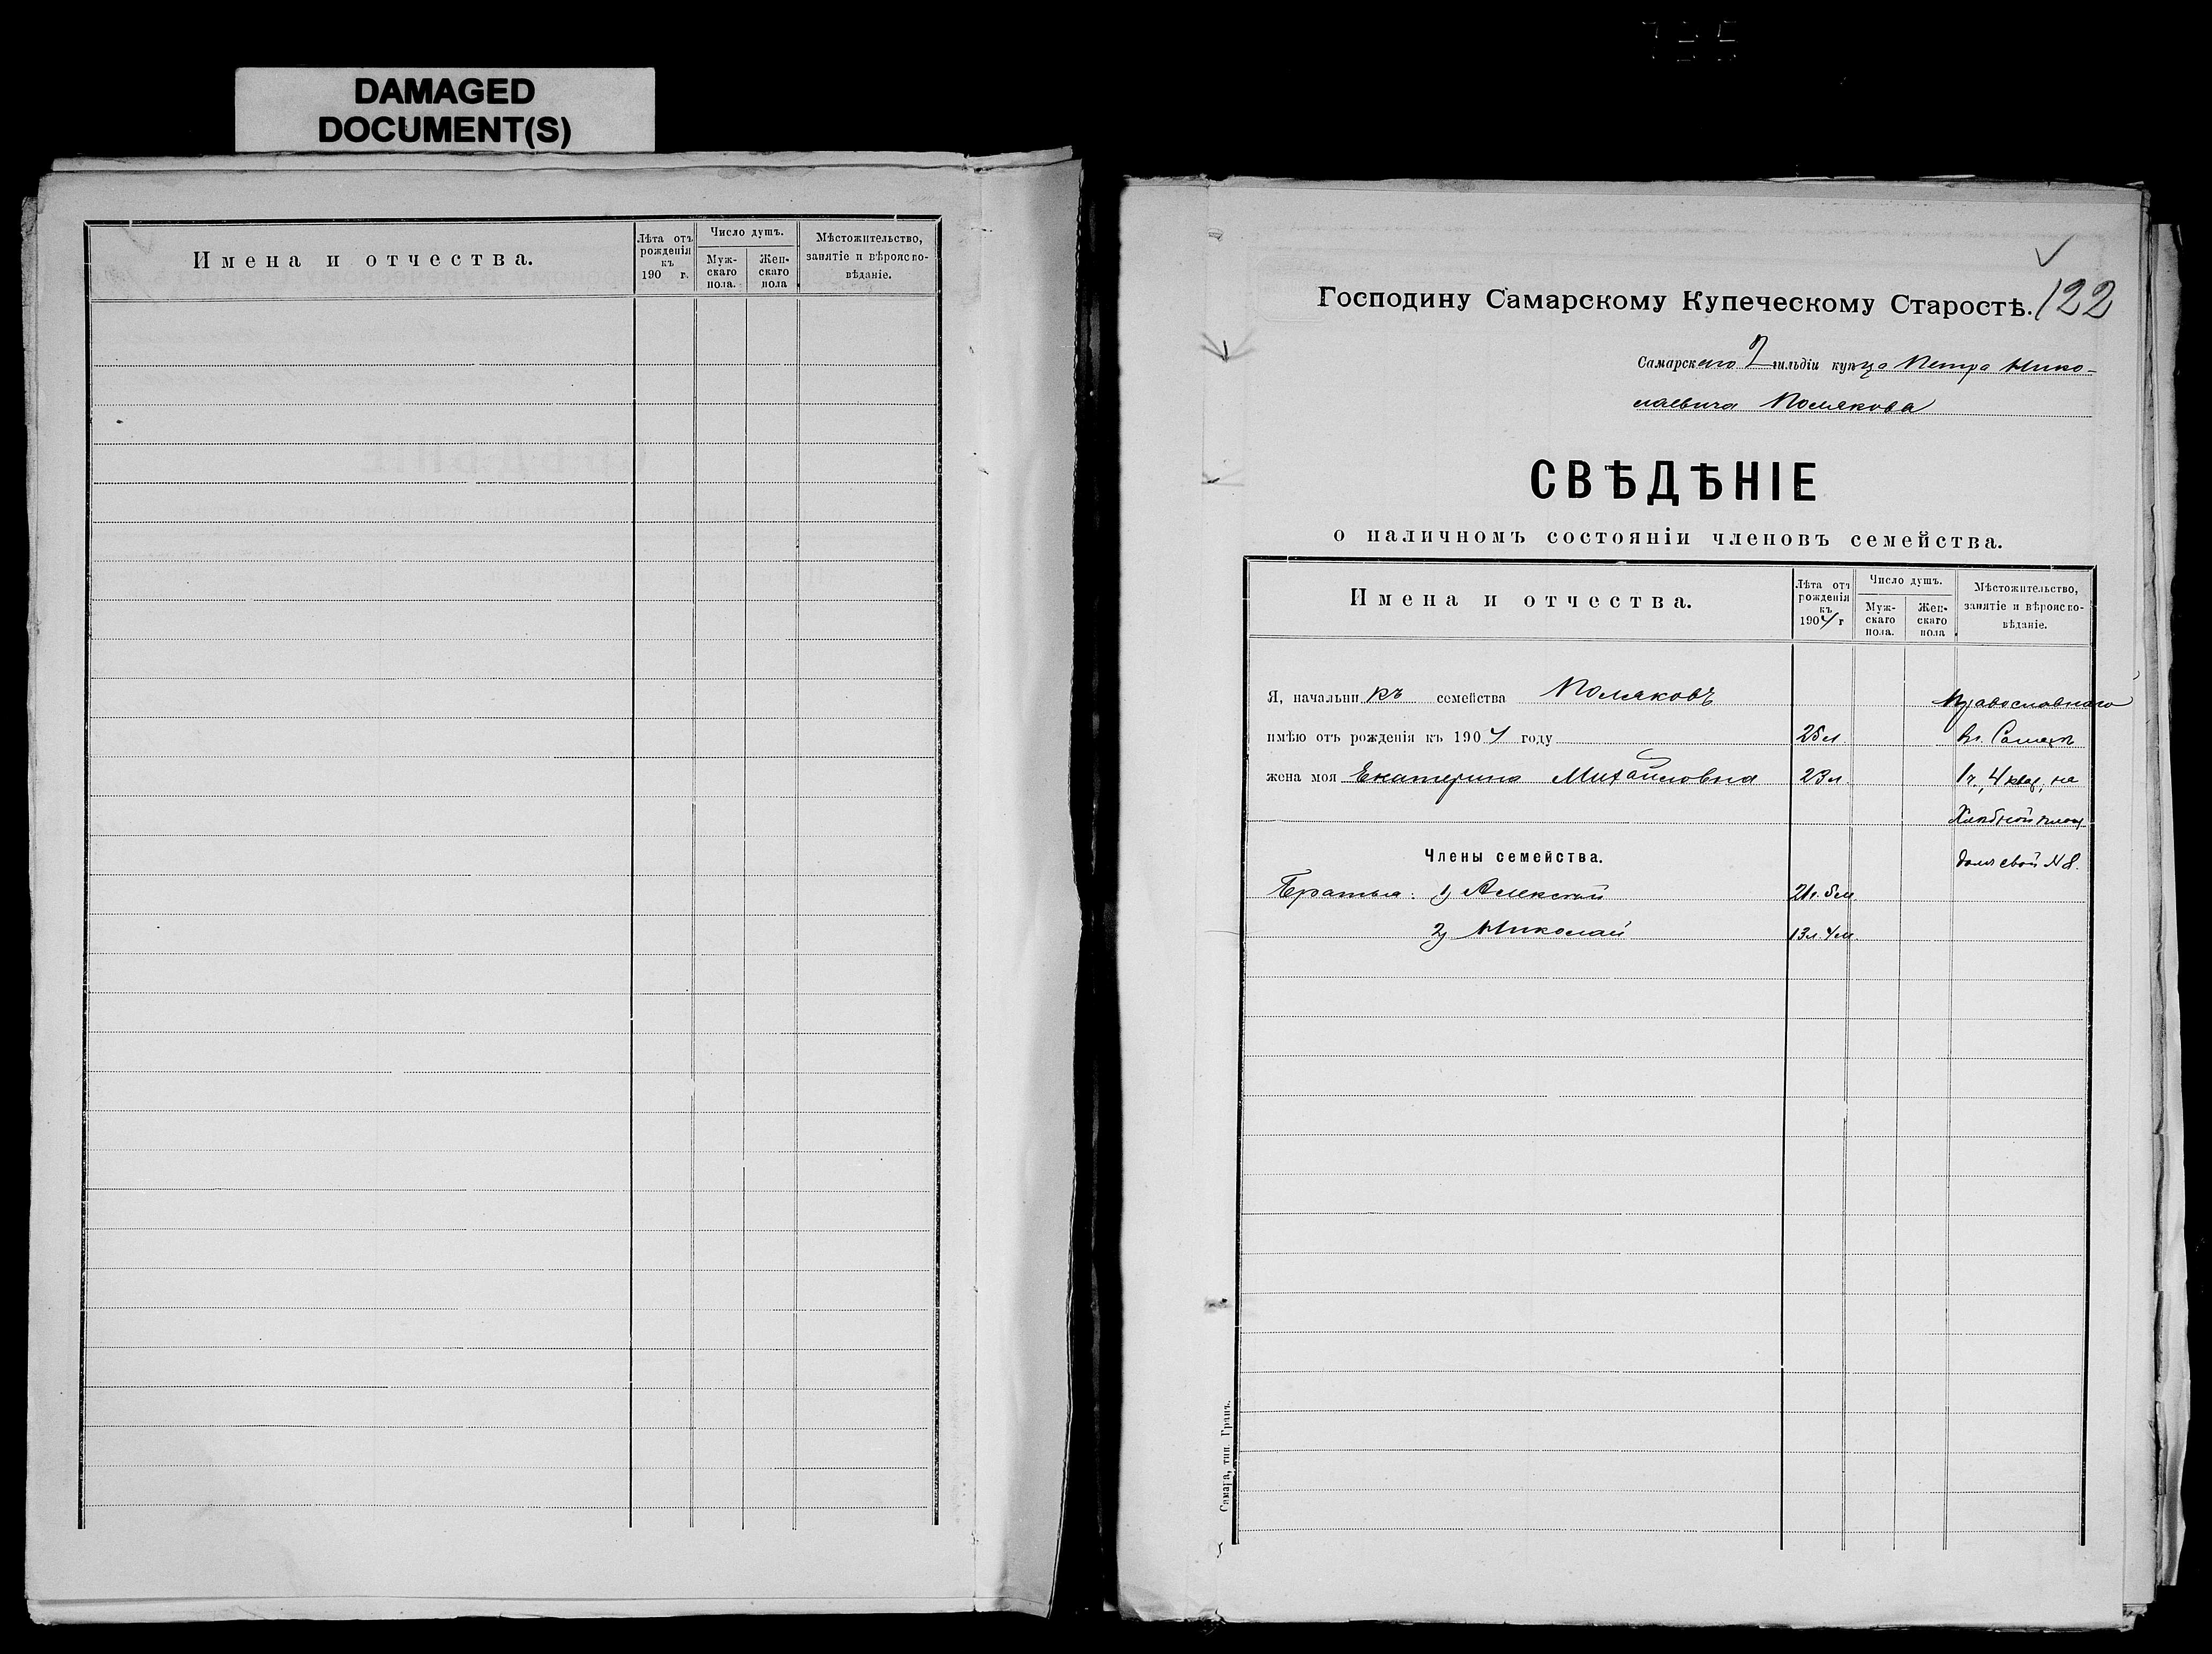 DAMAGED
DOCUMENT(S)
Имена и отчества.
Лѣта отъ рожденія къ 190 г.
Число душъ.
Мужскаго пола.
Женскаго пола
Мѣстожительство, занятіе и вѣроисповѣданіе.
122
Господину Самарскому Купеческому Старостѣ.
Самарскаго 2 гильдіи купца Петра Нико-
лаевича Полякова
СВѢДѢНІЕ
о наличномъ состояніи членовъ семейства.
Имена и отчества.
Лѣта отъ рожденія къ 1904 г
Число душъ.
Мужскаго пола.
Женскаго пола
Мѣстожительство, занятіе и вѣроисповѣданіе.
Я, начальникъ семейства Поляковъ Православнаго
имѣю отъ рожденія къ 1904 году 25 л. въ г. Самарѣ
жена моя Екатерина Михайловна 23 л. 1 ч., 4 квар, на
Хлѣбной площ
Члены семейства. домъ свой №8.
Братья: 1) Алексѣй 21 л. 5 м
2) Николай 13 л. 4 м
Самара, тип. Гранъ.